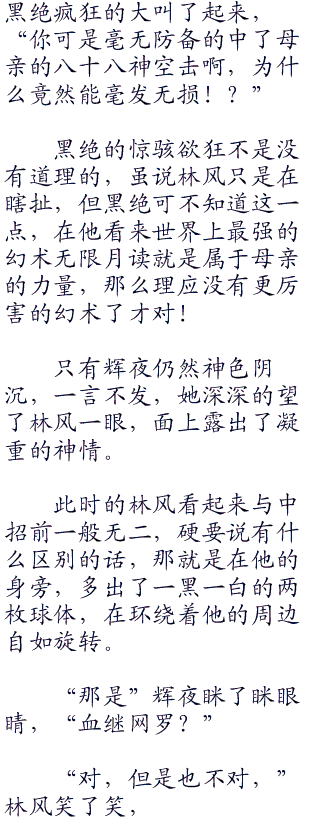 黑绝疯狂的大叫了起来，
“你可是毫无防备的中了母
亲的八十八神空击啊，为什
么竟然能毫发无损！？”
黑绝的惊骇欲狂不是没
有道理的，虽说林风只是在
瞎扯，但黑绝可不知道这一
点，在他看来世界上最强的
幻术无限月读就是属于母亲
的力量，那么理应没有更厉
害的幻术了才对！
只有辉夜仍然神色阴
沉，一言不发，她深深的望
了林风一眼，面上露出了凝
重的神情。
此时的林风看起来与中
招前一般无二，硬要说有什
么区别的话，那就是在他的
身旁，多出了一黑一白的两
枚球体，在环绕着他的周边
自如旋转。
“那是”辉夜眯了眯眼
睛，“血继网罗？”
“对，但是也不对，”
林风笑了笑，